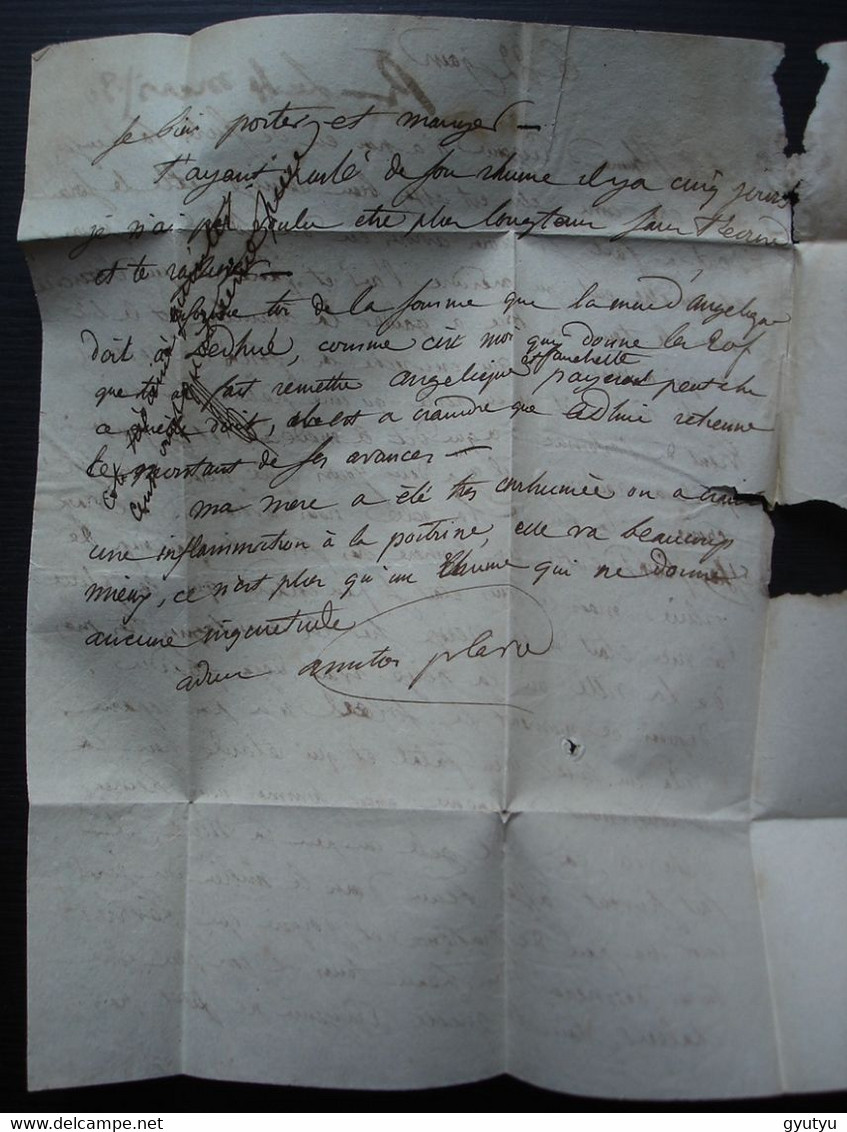 se bien porter, et manger —
t'ayant parlé de son rhume il y a cinq jours
je n'ai pas voulu etre plus longtems sans t'ecrire
et te rassurer —
informe toi de la somme que la mere d'angelique
doit a Ledhui, comme c'est moi qui donne les 20f
que tu as fait remettre angelique et fanchette payeront peut etre
ce qu'elle doit, il est a craindre que Ledhui retienne
le montant de ses avances —
ma mere a été tres enrhumée on a craint
une inflammation à la poitrine, elle va beaucoup
mieux, ce n'est plus qu'un rhume qui ne donne
aucune inquietude
adieu amities
gyutyu
delcampe.net